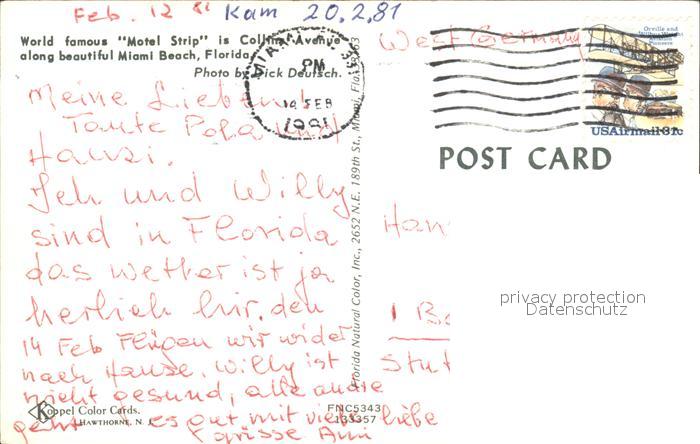 Feb. 12 81 Kam 20.2.81
World famous "Motel Strip" is Collins Avenue
along beautiful Miami Beach, Florida
Photo by Dick Deutsch.
MIAMI
PM
14 FEB
1981
West Germany
Orville and
Wilbur Wright
Aviation
Pioneers
USAirmail 31c
POST CARD
Meine Lieben
Tante Pepa und
Hansi.
Ich und Willy
sind in Florida
das wetter ist ja
herlich hir, den
14 Feb Flügen wir wider
nach Hause. Willy ist
nicht gesund, alle andre
geht es gut mit viele liebe
grüsse Ani
Florida Natural Color, Inc., 2652 N.E. 189th St., Miami, Fla. 33163
Han
1 Be
Stut
privacy protection
Datenschutz
Koppel Color Cards.
HAWTHORNE, N. J.
FNC5343
133357